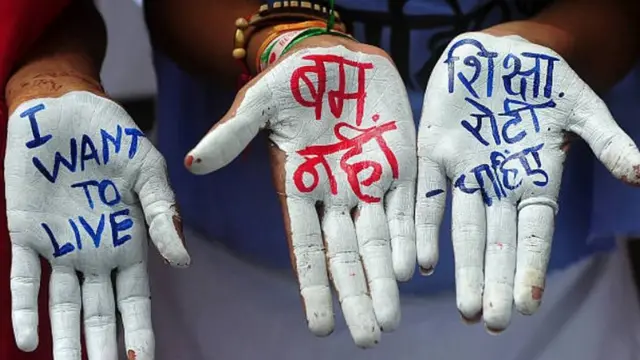 I
WANT
TO
LIVE
बम
नहीं
शिक्षा
रोटी
चाहिए